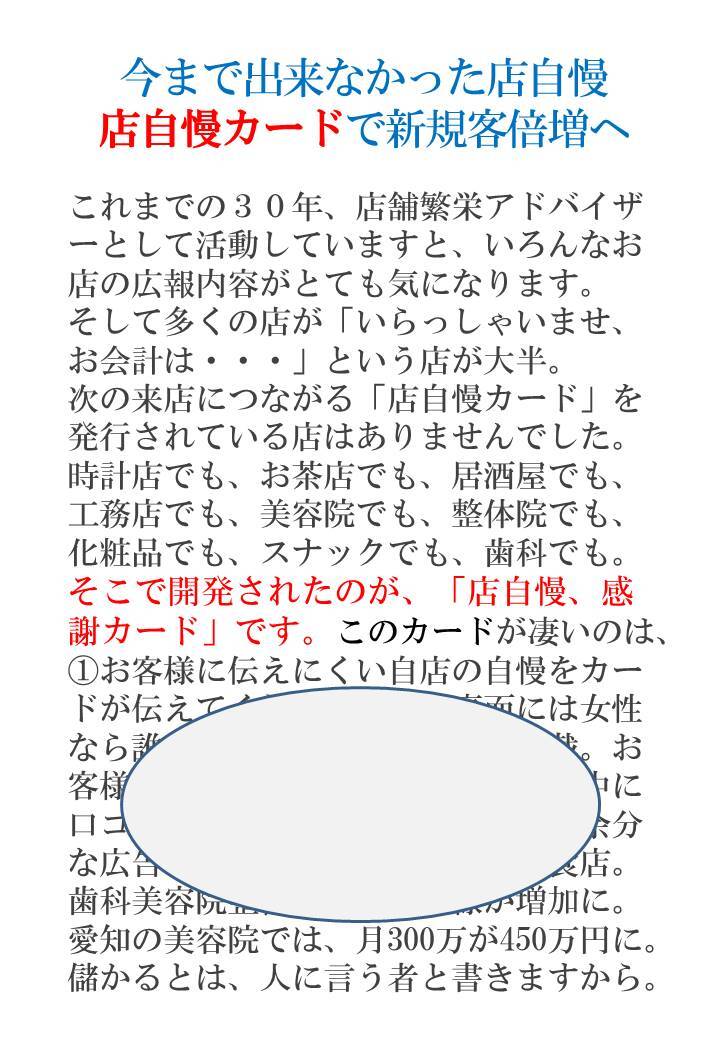 今まで出来なかった店自慢
店自慢カードで新規客倍増へ
これまでの３０年、店舗繁栄アドバイザ
ーとして活動していますと、いろんなお
店の広報内容がとても気になります。
そして多くの店が「いらっしゃいませ、
お会計は・・・」という店が大半。
次の来店につながる「店自慢カード」を
発行されている店はありませんでした。
時計店でも、お茶店でも、居酒屋でも、
工務店でも、美容院でも、整体院でも、
化粧品でも、スナックでも、歯科でも。
そこで開発されたのが、「店自慢、感
謝カード」です。このカードが凄いのは、
①お客様に伝えにくい自店の自慢をカー
ドが伝えて 裏面には女性
なら誰 。お
客様 中に
口コ 余分
な広告 食店。
歯科美容院 が増加に。
愛知の美容院では、月300万が450万円に。
儲かるとは、人に言う者と書きますから。